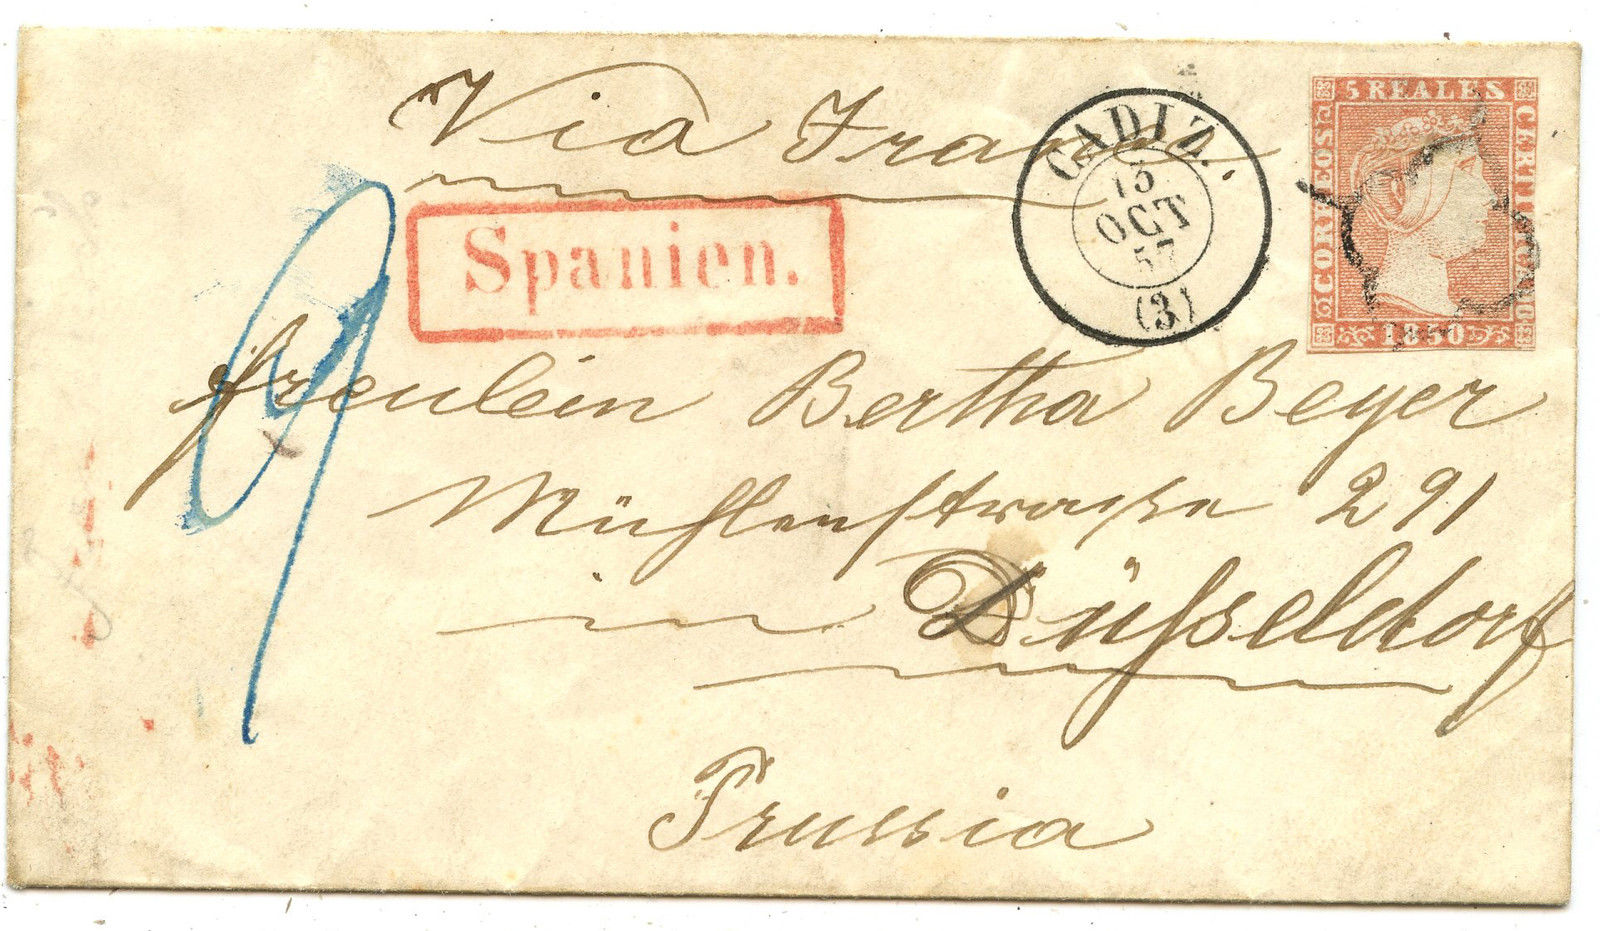 Via France
5 REALES
CORREOS
CERTIFICADO
1850
CADIZ.
13
OCT
57
(3)
Spanien.
9
Freulein Bertha Beyer
Mühlenstrasse 291
in Düsseldorf
Prussia